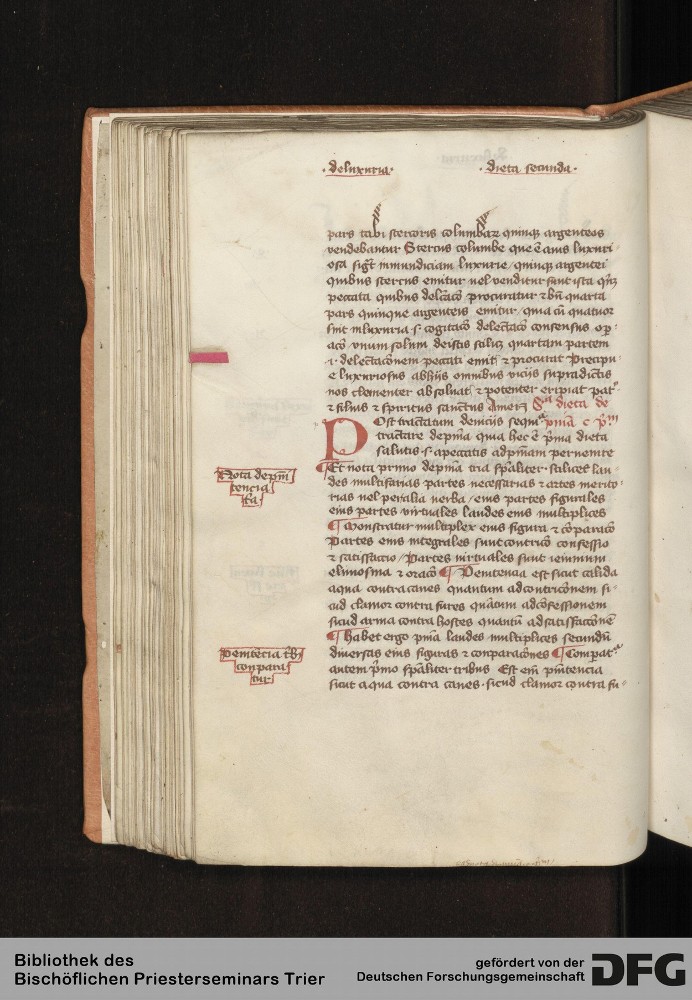 · de luxuria ·
· dieta secunda ·
pars cabi stercoris columbarum quinque argenteos
vendebantur Stercus columbe que ē auis luxuri
osa sigt inmundiciam luxurie / quinque argentei
quibus stercus emitur uel venditur sunt ista
peccata quibus delcaco procuratur quarta
pars quinque argenteis emitur / quia cū quatuor
sint in luxuria .s. cogitaco delectaco consensus op
aco vnum solum de istis scilicet quartam partem
.i. delectaconem peccati emit et procurat Precipu
e luxuriosus ab hijs omnibus vicijs supradictis
nos clementer absoluat et potenter eripiat pat
et filius et spiritus sanctus Amen dieta de
Post tractatum de vicijs pma c
tractare de pma que hec ē prima dieta
salutis .s. a peccatis ad pmam peruenire
Et nota primo de pma tria spaliter scilicet lau
des multifarias partes necessarias et artes merito
rias uel peralia uerba / eius partes figurales
eius partes virtuales laudes eius multiplices
Monstratur multiplex eius figura et comparaco
Partes eius integrales sunt contrico confessio
et satisfactio / Partes uirtuales sunt ieiunium
elimosina et oraco Penitencia est sicut calida
aqua contra canes quantum ad contriconem si
cud clamor contra fures quātum ad cōfessionem
sicud arma contra hostes quantū ad satisfaccōnē
Habet ergo pma laudes multiplices secundū
diuersas eius figuras et conparacōnes Comparat
autem pmo spaliter tribus Est em pntencia
sicut aqua contra canes . sicud clamor contra fu
Nota de peni
tencia
tria
Penitecia tribus
conpara
tur
Bibliothek des
Bischöflichen Priesterseminars Trier
gefördert von der
Deutschen Forschungsgemeinschaft
DFG